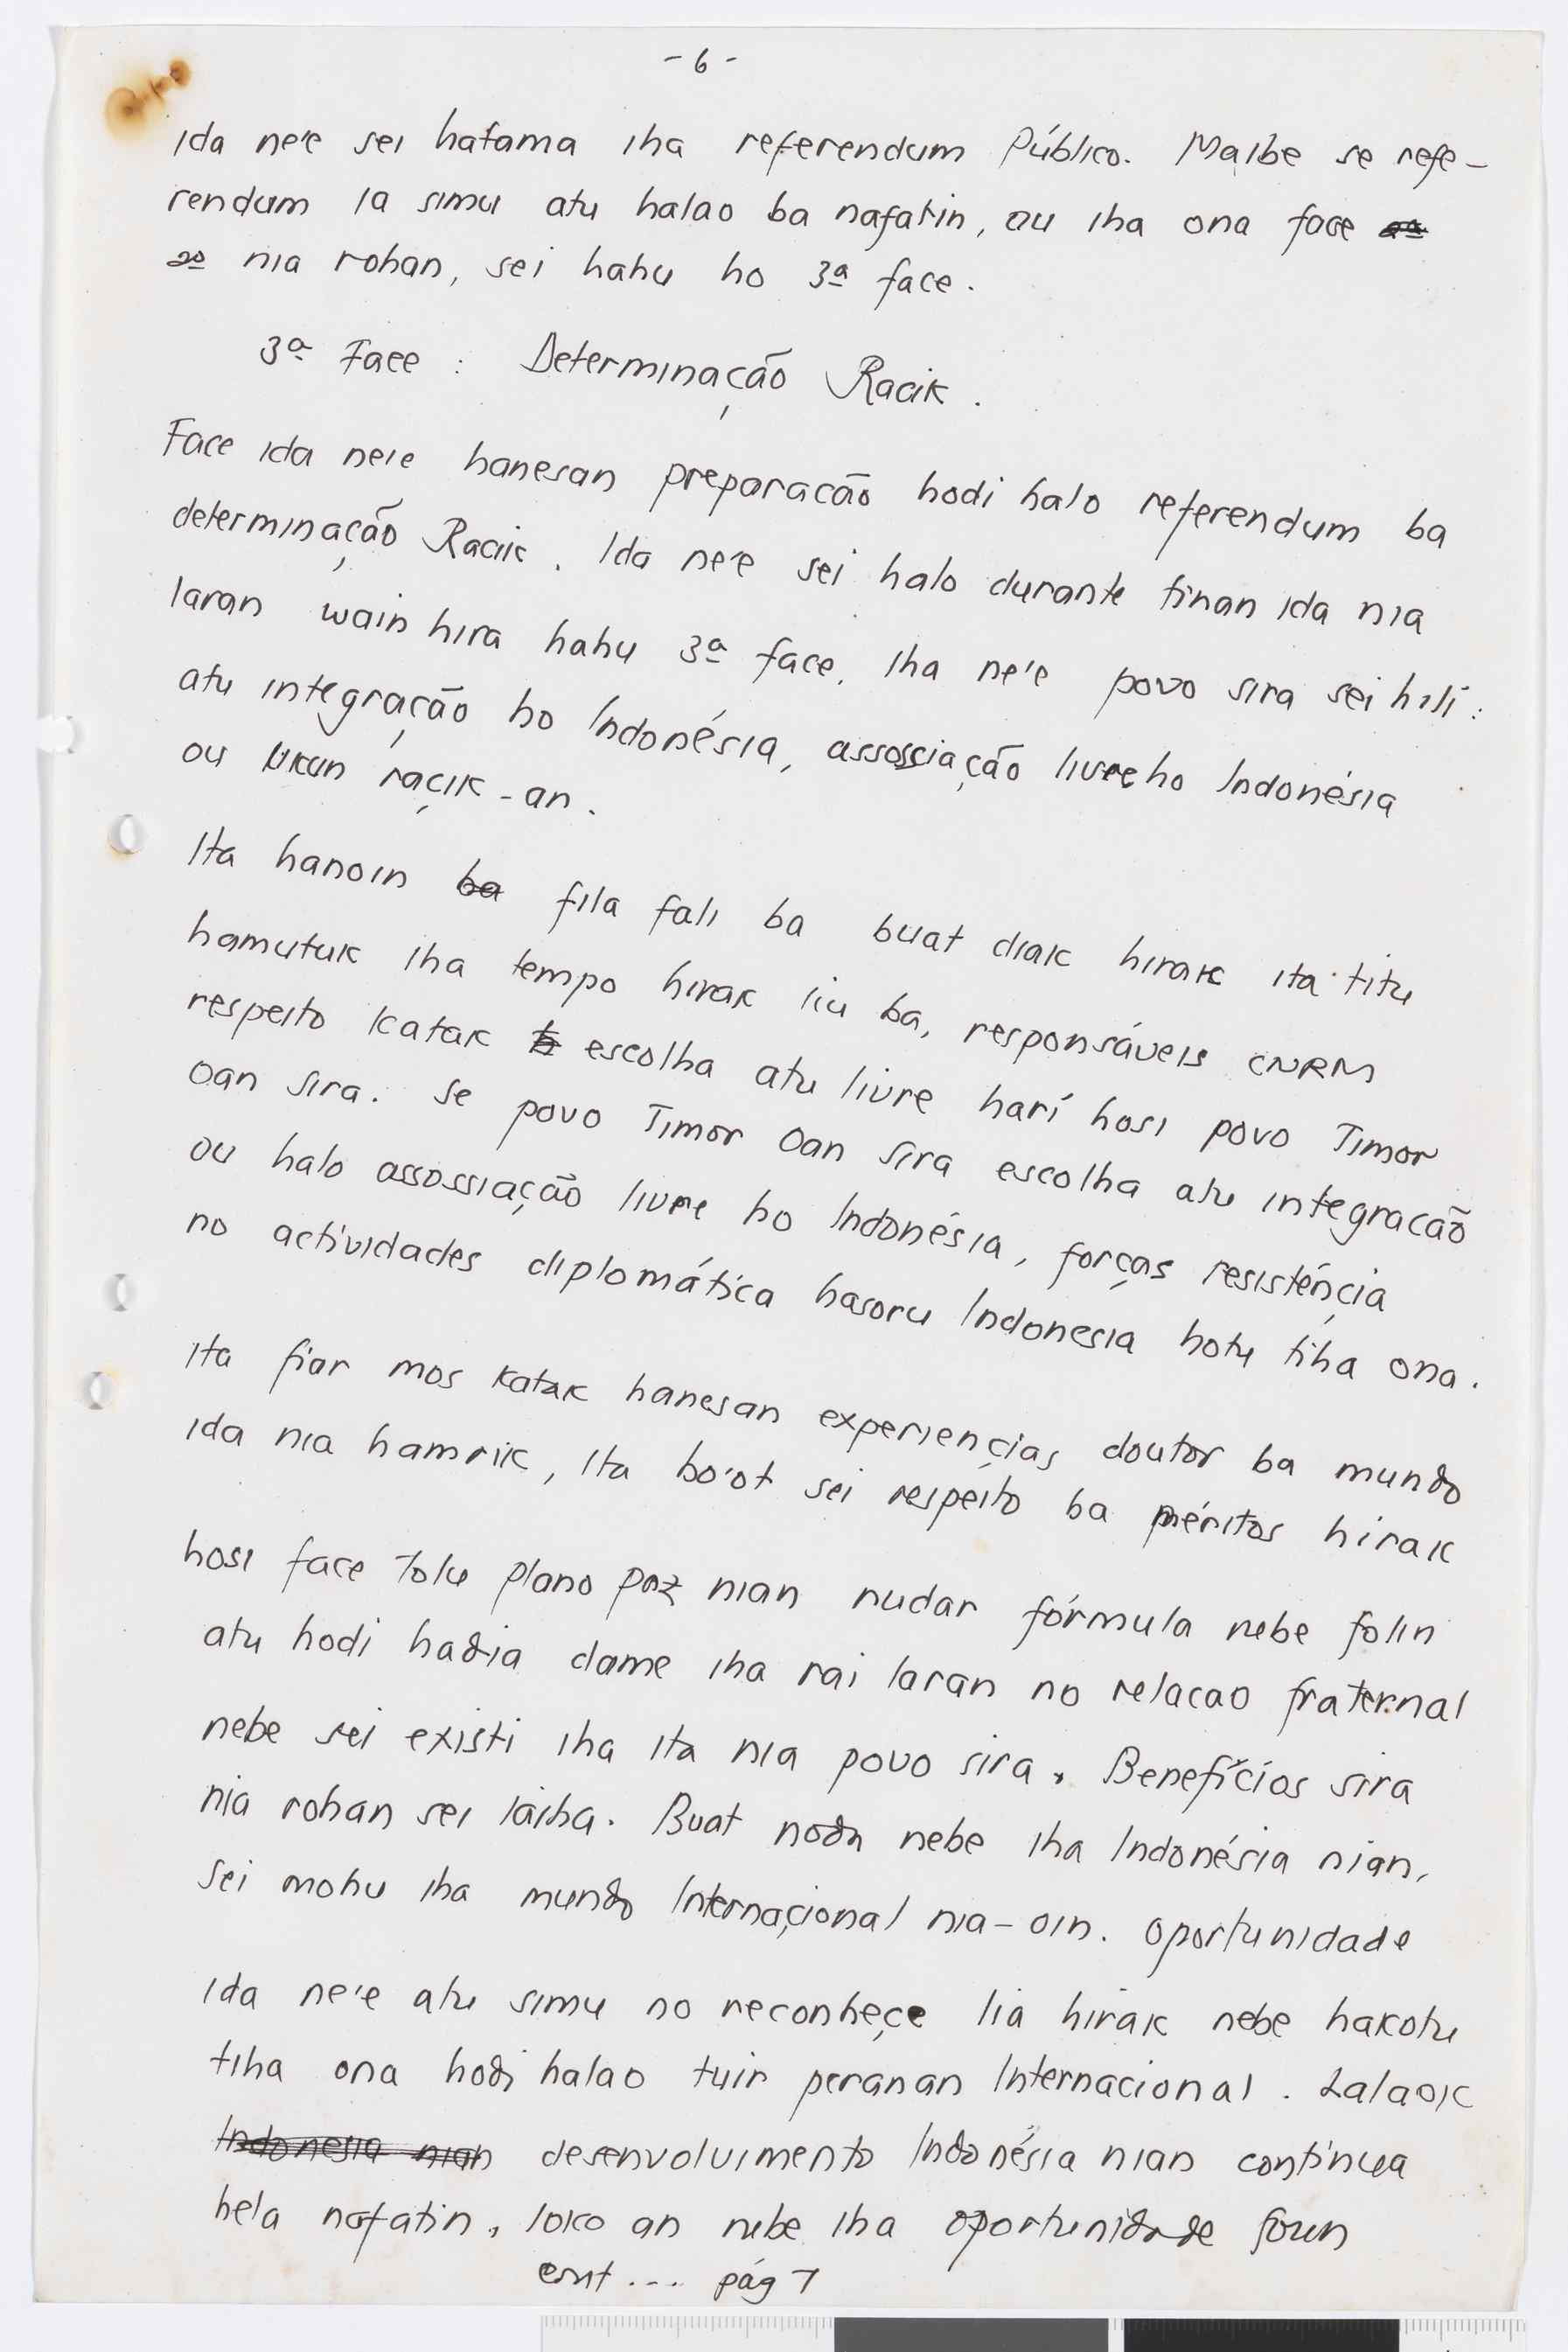 - 6 -
Ida ne'e sei hatama iha referendum Público. Maibe se refe-
rendum la simu atu halao ba nafatin, ou iha ona face
nia rohan, sei hahu ho 3ª face.
3ª Face : Determinação Racik.
Face ida ne'e hanesan preparacão hodi halo referendum ba
determinação Racik. Ida ne'e sei halo durante tinan ida nia
laran wain hira hahu 3ª face. Iha ne'e povo sira sei hili:
atu integração ho Indonésia, assossiação livre ho Indonésia
ou Ukun raçik-an.
Ita hanoin ba fila fali ba buat diak hirak ita titu
hamutuk iha tempo hirak liu ba, responsáveis CNRM
respeito Katak escolha atu livre harí hosi povo Timor
Oan sira. Se povo Timor Oan sira escolha atu integracão
ou halo assossiação livre ho Indonésia, forças resisténçia
no actividades diplomática hasoru Indonesia hotu tiha ona.
Ita fiar mos Katak hanesan experiençias doutor ba mundo
ida nia hamriik, Ita bo'ot sei respeito ba méritos hirak
hosi face tolu plano paz nian nudar fórmula nebe folin
atu hodi hadia dame iha rai laran no relacao fraternal
nebe sei existi iha ita nia povo sira. Benefícios sira
nia rohan sei laiha. Buat nodu nebe iha Indonésia nian,
sei mohu iha mundo Internaçional nia-oin. Oportunidade
ida ne'e atu simu no reconheçe lia hirak nebe hakotu
tiha ona hodi halao tuir peranan Internacional. Lalaok
Indonesia nian desenvolvimento Indonésia nian continua
hela nafatin, loko an nebe iha oportunidade foun
cont ... pág 7